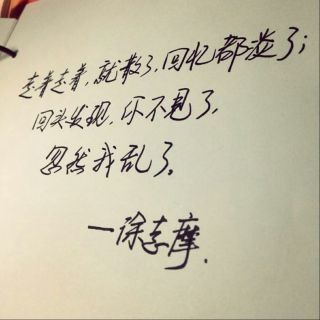 走着走着，就散了，回忆都淡了；
回头发现，你不见了，
忽然我乱了。
—徐志摩.